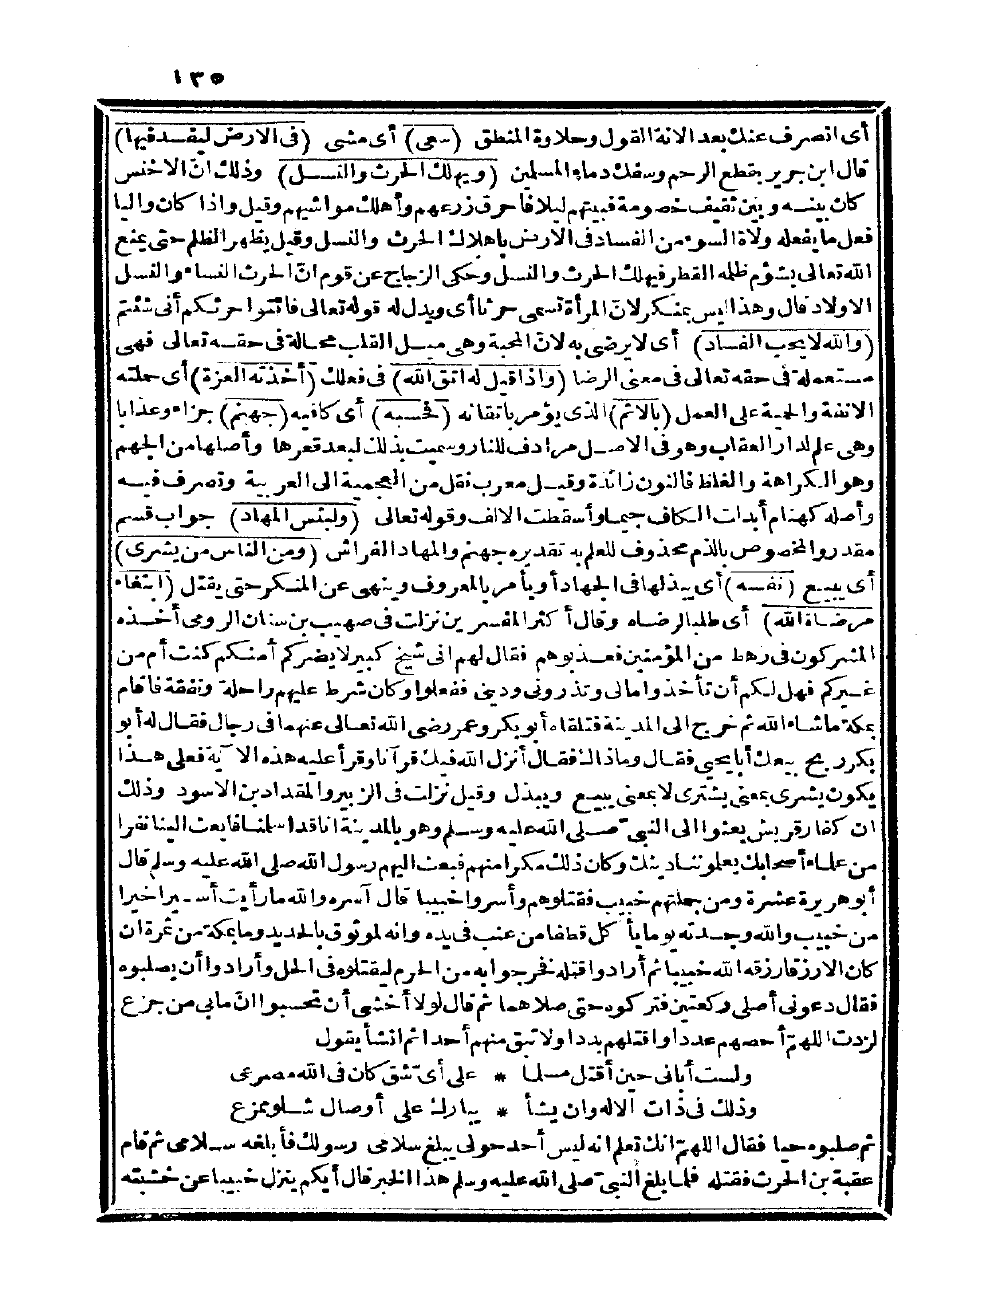 ١٣٥
أى انصرف عنك بعد الانة القول وحلاوة المنطق (سعى) أى مشى (فى الارض ليفسد فيها)
قال ابن جرير بقطع الرحم وسفك دماء المسلمين (ويهلك الحرث والنسل) وذلك انّ الاخنس
كان بينه وبين ثقيف خصومة فبيتهم ليلا فأحرق زرعهم وأهلك مواشيهم وقيل واذا كان واليا
فعل ما يفعله ولاة السوء من الفساد فى الارض باهلاك الحرث والنسل وقيل يظهر الظلم حتى يمنع
الله تعالى بشؤم ظلمه القطر فيهلك الحرث والنسل وحكى الزجاج عن قوم انّ الحرث النساء والنسل
الاولاد قال وهذا ليس بمنكر لانّ المرأة تسمى حرثا أى ويدل له قوله تعالى فائتوا حرثكم أنى شئتم
(والله لا يحب الفساد) أى لا يرضى به لانّ المحبة وهى ميل القلب محالة فى حقه تعالى فهى
مستعملة فى حقه تعالى فى معنى الرضا (واذا قيل له اتق الله) فى فعلك (أخذته العزة) أى حملته
الانفة والحمية على العمل (بالاثم) الذى يؤمر باتقائه (فحسبه) أى كافيه (جهنم) جزاء وعذابا
وهى علم لدار العقاب وهو فى الاصل مرادف للنار وسميت بذلك لبعد قعرها وأصلها من الجهم
وهو الكراهة والغلظ فالنون زائدة وقيل معرب نقل من العجمية الى العربية وتصرف فيه
وأصله كهنام أبدلت الكاف جيما وأسقطت الالف وقوله تعالى (ولبئس المهاد) جواب قسم
مقدر والمخصوص بالذم محذوف للعلم به تقديره جهنم والمهاد الفراش (ومن الناس من يشرى)
أى يبيع (نفسه) أى يبذلها فى الجهاد أو يأمر بالمعروف وينهى عن المنكر حتى يقتل (ابتغاء
مرضاة الله) أى طلبا لرضاه وقال أكثر المفسرين نزلت فى صهيب بن سنان الرومى أخذه
المشركون فى رهط من المؤمنين فعذبوهم فقال لهم انى شيخ كبير لا يضركم أمنكم كنت أم من
غيركم فهل لكم أن تأخذوا مالى وتذرونى ودينى ففعلوا وكان شرط عليهم راحلة ونفقة فاقام
بمكة ما شاء الله ثم خرج الى المدينة فتلقاه أبو بكر وعمر رضى الله تعالى عنهما فى رجال فقال له أبو
بكر ربح بيعك أبا يحيى فقال وما ذاك فقال أنزل الله فيك قرآنا وقرأ عليه هذه الآية فعلى هذا
يكون يشرى بمعنى يشترى لا بمعنى يبيع ويبذل وقيل نزلت فى الزبير والمقداد بن الاسود وذلك
ان كفار قريش بعثوا الى النبىّ صلى الله عليه وسلم وهو بالمدينة انا قد أسلمنا فابعث الينا نفرا
من علماء أصحابك يعلموننا دينك وكان ذلك مكرا منهم فبعث اليهم رسول الله صلى الله عليه وسلم قال
أبو هريرة عشرة ومن جملتهم خبيب فقتلوهم وأسروا خبيبا قال آسره والله ما رأيت أسيرا خيرا
من خبيب والله وجدته يوما يأكل قطفا من عنب فى يده وانه لموثوق بالحديد وما بمكة من ثمرة ان
كان الا رزقا رزقه الله خبيبا ثم أرادوا قتله فخرجوا به من الحرم ليقتلوه فى الحل وأرادوا أن يصلبوه
فقال دعونى أصلى ركعتين فتركوه حتى صلاهما ثم قال لولا أخشى أن تحسبوا انّ مابى من جزع
لزدت اللهمّ أحصهم عددا واقتلهم بددا ولا تبق منهم أحدا ثم انشأ يقول
ولست أبالى حين أقتل مسلما * على أىّ شق كان فى الله مصرعى
وذلك فى ذات الاله وان يشأ * يبارك على أوصال شلو ممزع
ثم صلبوه حيا فقال اللهمّ انك تعلم انه ليس أحد حولى يبلغ سلامى رسولك فأبلغه سلامى ثم قام
عقبة بن الحرث فقتله فلما بلغ النبىّ صلى الله عليه وسلم هذا الخبر قال أيكم ينزل خبيبا عن خشبته